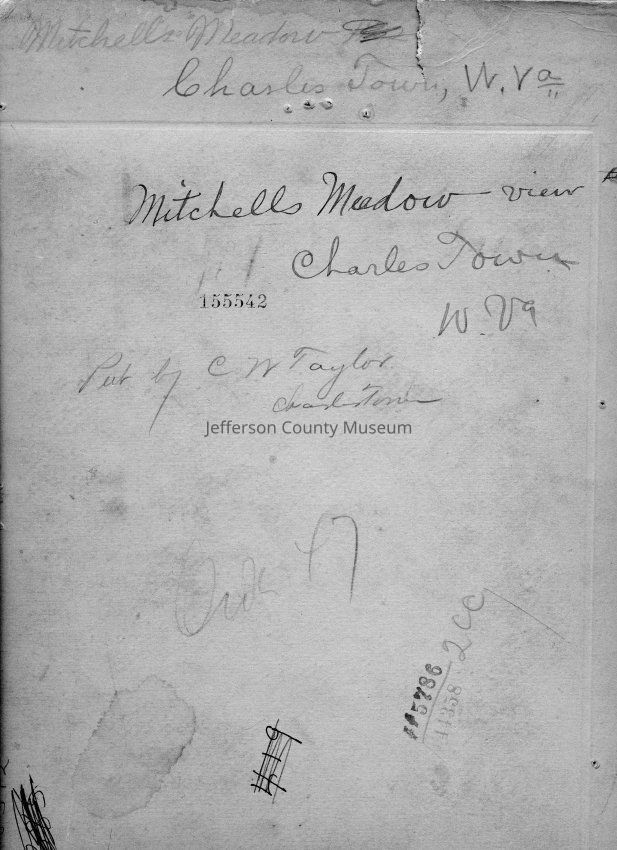 Mitchells Meadow
Charles Town, W. Va
Mitchells Meadow view
Charles Town
155542
W. Va
Pub by C W Taylor
Charlestown
Jefferson County Museum
17
200
115786
11358